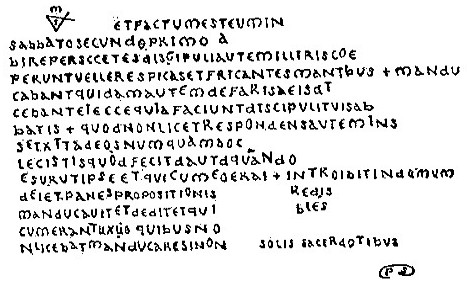 ETFACTUMESTEUMIN
SABBATOSECUNDOPRIMO A
BIREPERSCCETESDISGIPULIAUTEMILLITRISCOE
PERUNTVELLERESPICASETFRICANTESMANTBUS + MANDU
CABANTQUIDAMAUTEMDEFARISAEISDT
CEBANTEIECCEQUIAFACIUNTDISCIPULITUISAB
BATIS + QUODNONLICETRESPONDENSAUTEMINS
SETXTTADEOSNUMQUAMHOC
LECISTISQUODFECITDAUTDQUANDO
ESURUTIPSEETQUICUMEOERAI + INTROIBITINDOMUM
DEIETPANESPROPOSITIONIS REDIS
MANDUCAUITETDEDITETQUI BLES
CUMERANTUXUO QUIBUSNO
NLICEBATMANDUCARESINON SOLIS SACERDOTIBUS
PS